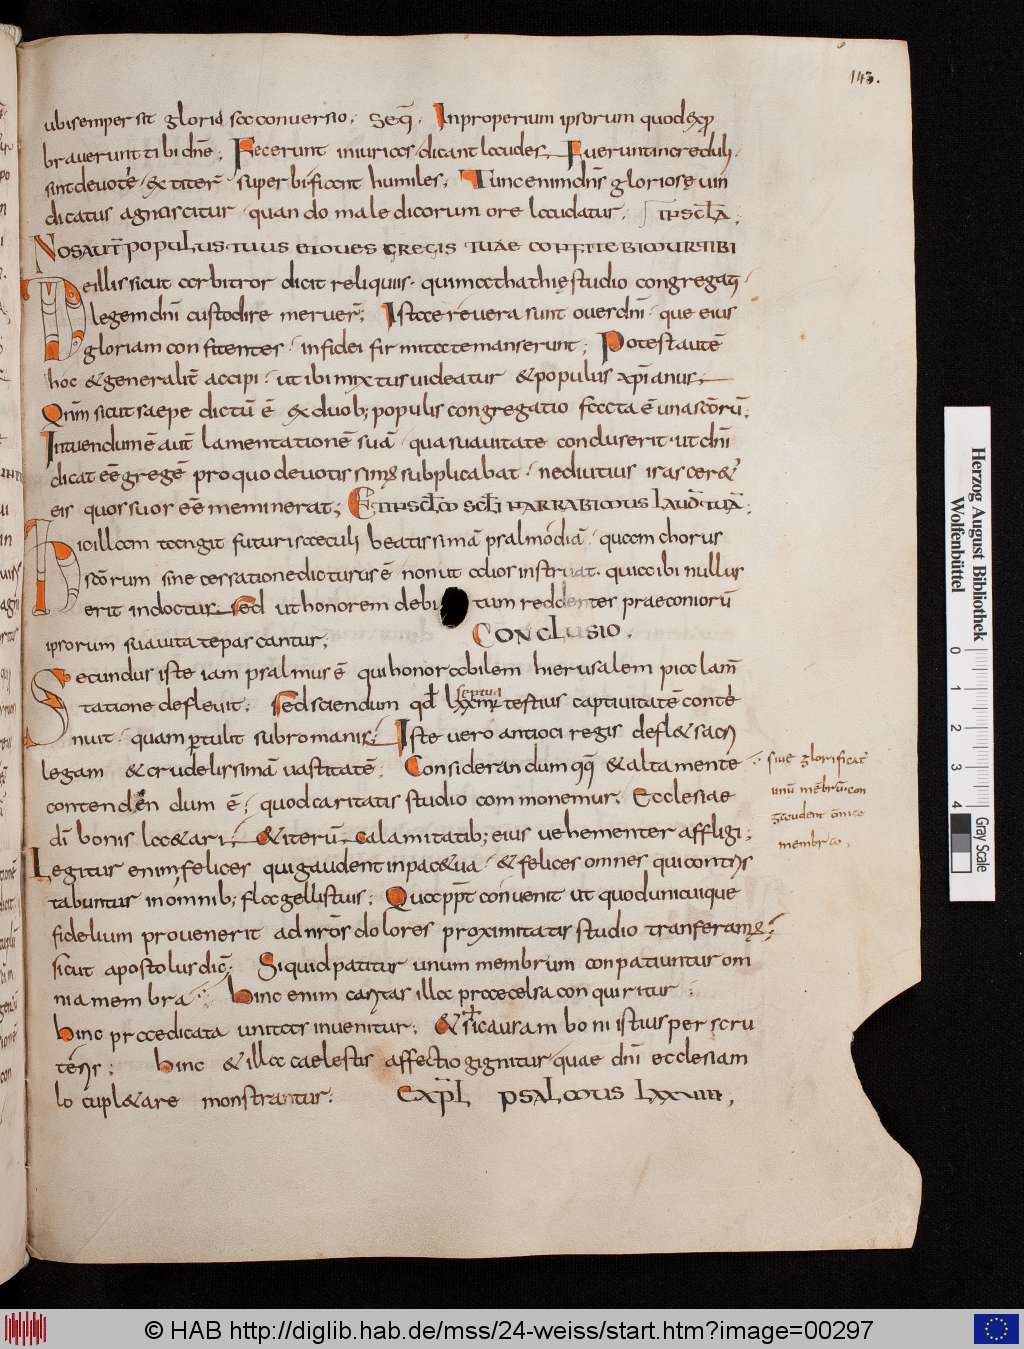 143.
ubi semper sit gloria sca conuersio. Seq̄. Inproperium ipsorum quod exp
brauerunt tibi dn̄e; Fecerunt iniurias. dicant laudes. Fuerunt increduli.
sint deuote. Extiter̄ superbi fiant humiles; Tunc enim dn̄s gloriosę uin
dicatus agnascitur. quando maledicorum ore laudatur.
Nos aut̄ populus tuus et oues gregis tuae confitebimur tibi
De illis sicut arbitror dicit reliquiis. qui mathathię studio congregati
legem dn̄i custodire meruer̄; Istae reuera sunt oues dn̄i. que eius
gloriam confitentes. in fidei firmitate manserunt; Potest autē
hoc & generalit̄ accipi. ut ibi mixtus uideatur & populus xp̄ianus;
Qn̄m sicut saepe dictū ē ex duob; populis congregatio facta ē una scōrū.
Intuendum ē aut̄ lamentationē suā. qua suauitate concluserit. ut dn̄i
dicat eē gregē pro quo deuotissimę subplicabat. ne diutius irascer&
eis quos suos eē meminerat; Et in scl̄m scl̄i narrabimus laudē tuā;
Hic illam tangit futuri saeculi beatissimā psalmodiā. quam chorus
scōrum sine cessatione dicturus ē non ut alios instruat. quia ibi nullus
erit indoctus. Sed ut honorem debitum reddentes praeconiorū
ipsorum suauitate pascantur; Conclusio.
Secundus iste iam psalmus ē qui honorabilem hierusalem pia lam̄
tatione defleuit; Sed sciendum qd̄ septua testius captiuitatē conte
nuit. quam ptulit sub romanis; Iste uero antioci regis defl& sacri
legam & crudelissimā uastitatē; Considerandum qq̄ & alta mente
contendendum ē; quod caritatis studio commonemur. Ecclesiae
dī bonis l&ari; & iterū calamitatib; eius uehementer affligi;
Legitur enim felices qui gaudent in pace tua. & felices omnes qui contris
tabuntur in omnib; flagellis tuis; Qua ppt̄ conuenit ut quod unicuique
fidelium prouenerit ad nr̄os dolores proximitatis studio tranferamę;
sicut apostolus dic̄; Si quid patitur unum membrum conpatiuntur om
nia membra. Hinc enim caritas illa praecelsa conquiritur;
hinc praedicata unitas inuenitur; & sic causam boni istius perscru
teris; hinc & illa caelestis affectio gignitur quae dn̄i ecclesiam
lo cupl&are monstrantur. Expl̄ psalmus lxxviii,
siue glorificat̄
unū mēbrū. con
gaudent omnia
membra.
Herzog August Bibliothek
Wolfenbüttel
0 1 2 3 4
Gray Scale
© HAB http://diglib.hab.de/mss/24-weiss/start.htm?image=00297